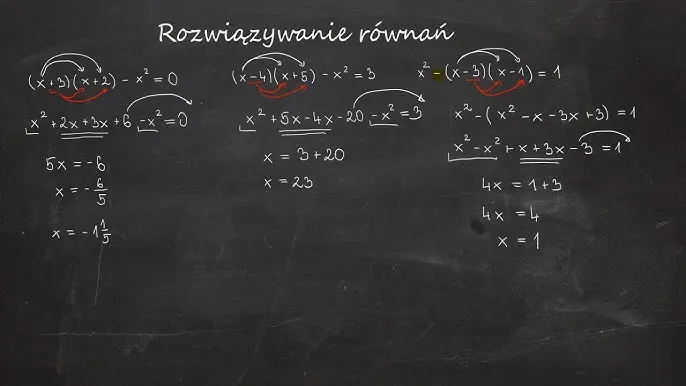 Rozwiązywanie równań
(x+3)(x+2) - x² = 0
x² + 2x + 3x + 6 - x² = 0
5x = -6
x = - 6/5
x = -1 1/5
(x-4)(x+5) - x² = 3
x² + 5x - 4x - 20 - x² = 3
x = 3 + 20
x = 23
x² - (x-3)(x-1) = 1
x² - (x² - x - 3x + 3) = 1
x² - x² + x + 3x - 3 = 1
4x = 1 + 3
4x = 4
x = 1